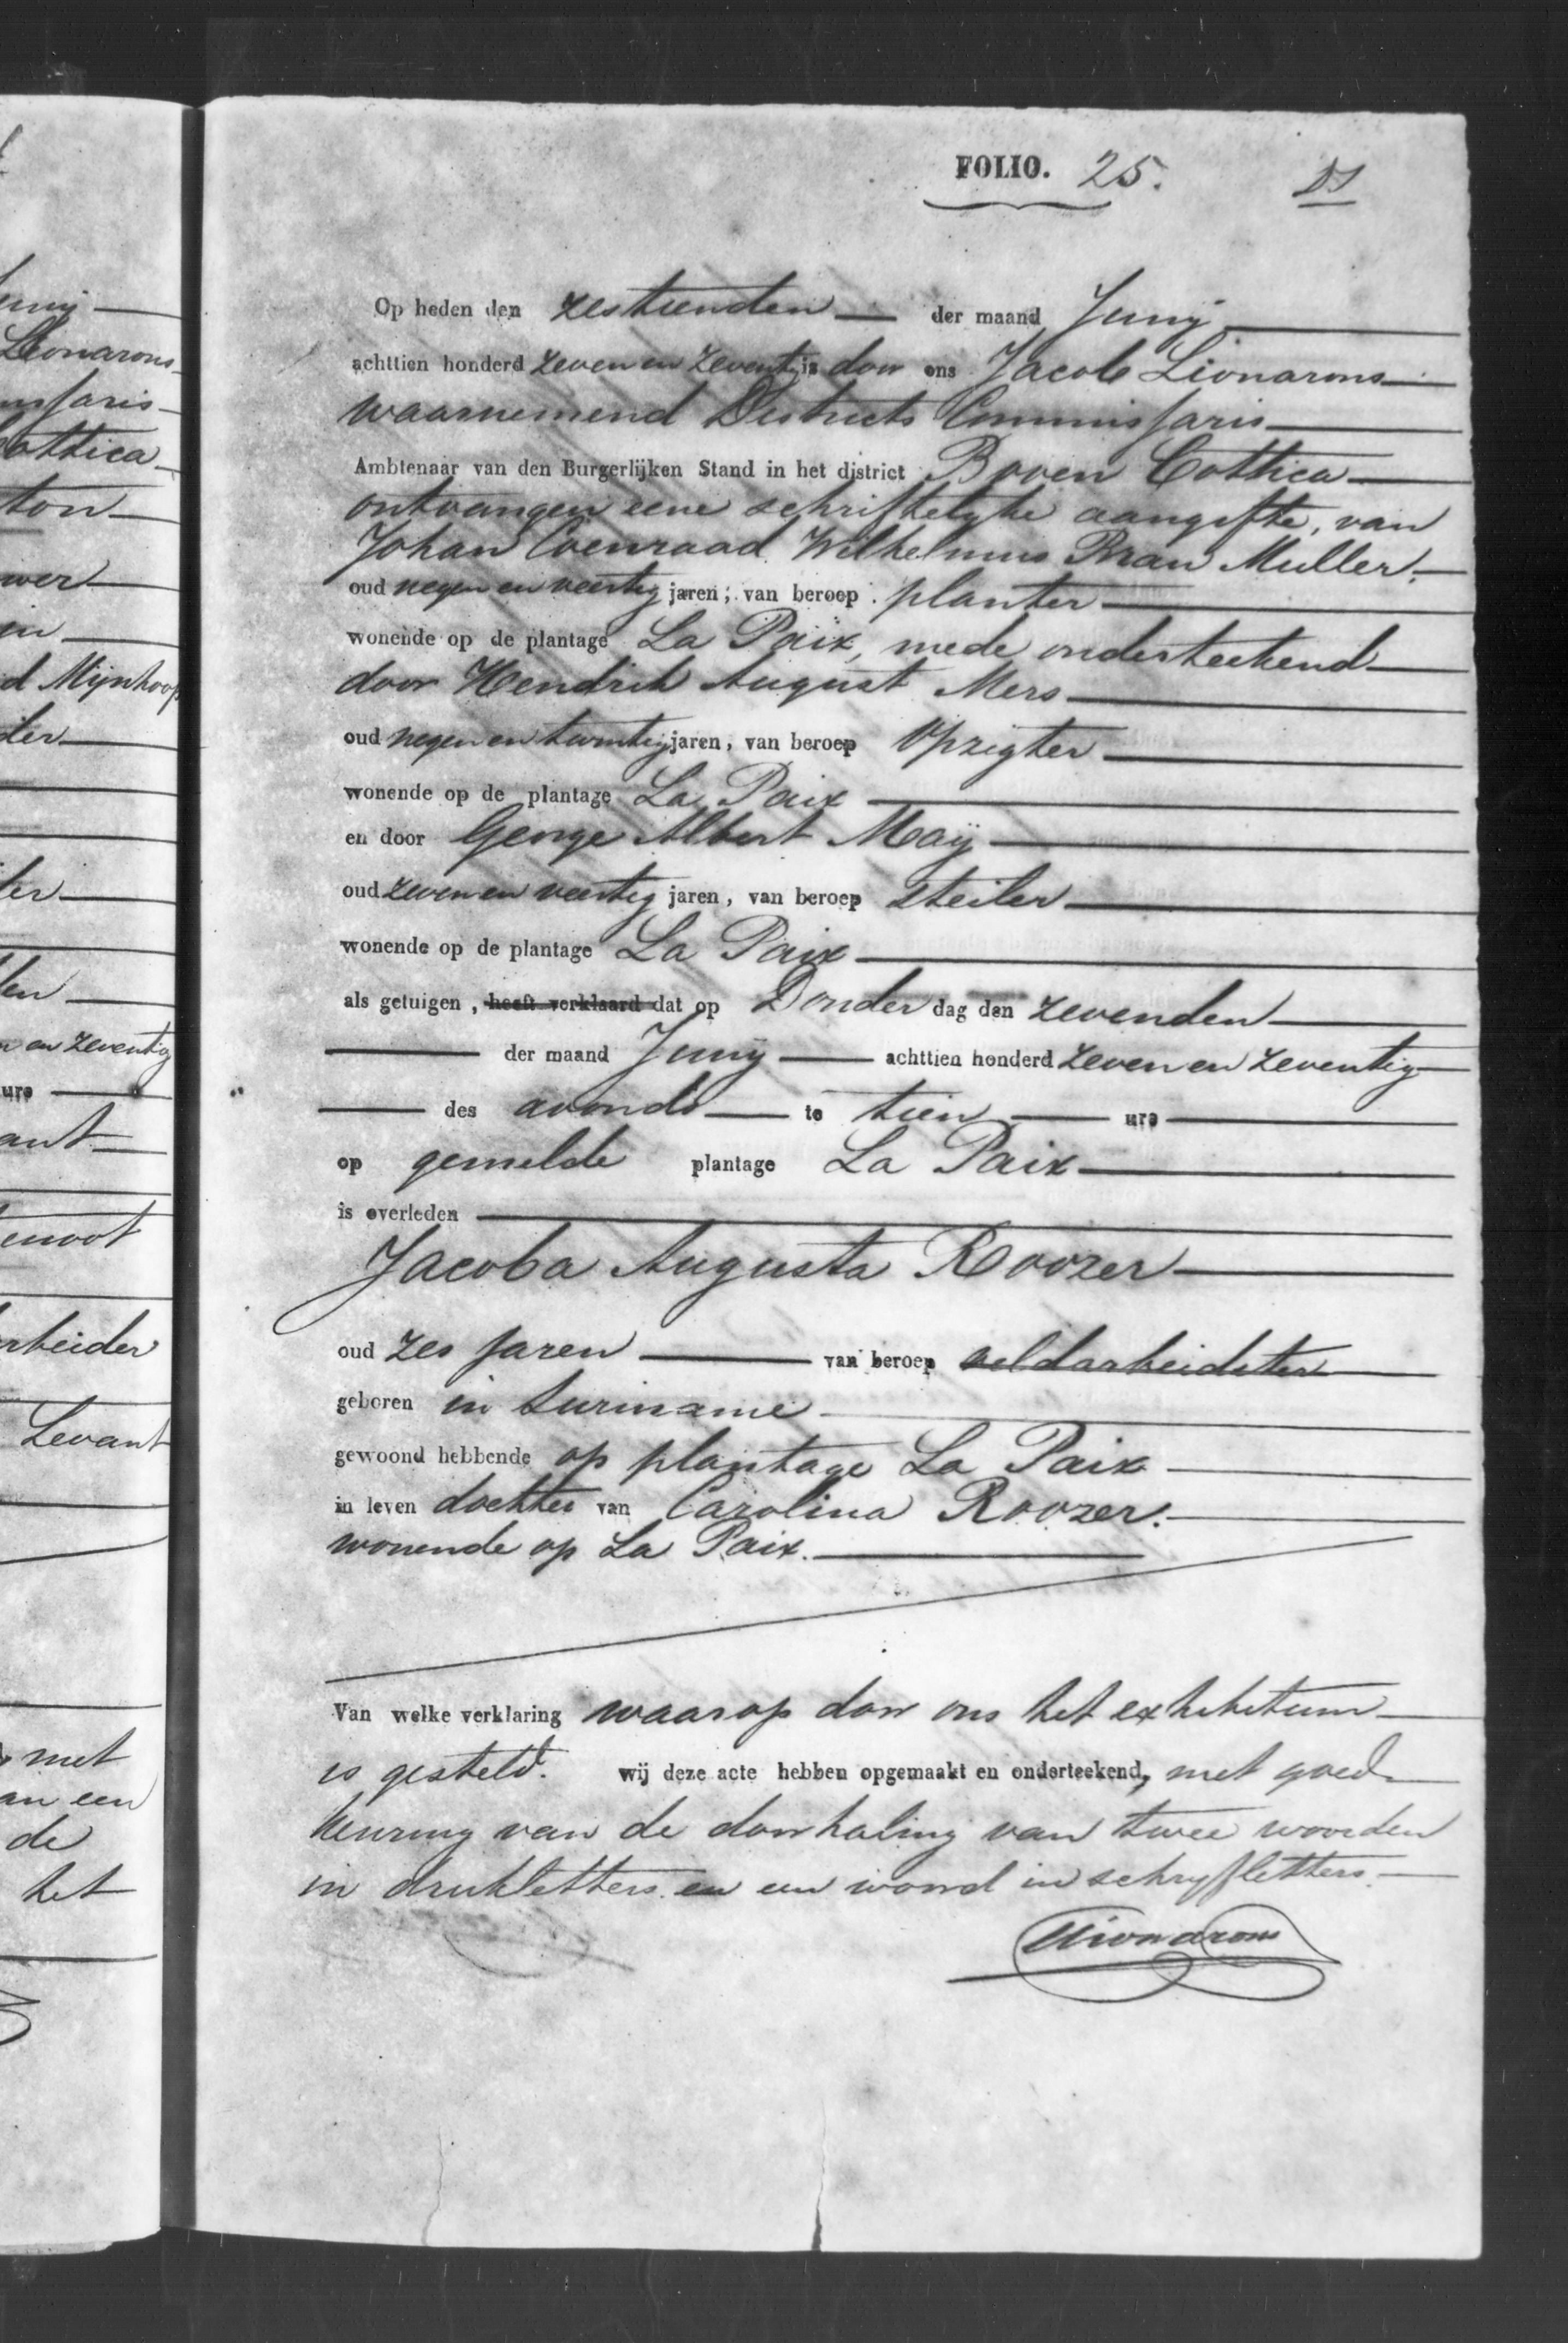 FOLIO. 25.
Op heden den zestienden der maand Junij
achttien honderd zeven en zeventig is door ons Jacob Lionarons
waarnemend Districts Commissaris
Ambtenaar van den Burgerlijken Stand in het district Boven Cottica
ontvangen eene schriftelyke aangifte, van
Johan Coenraad Wilhelmus Bran Muller.
oud negen en veertig jaren, van beroep planter
wonende op de plantage La Paix, mede onderteekend
door Hendrik August Mers
oud negen en twintig jaren, van beroep Opzigter
wonende op de plantage La Paix
en door George Albert Maÿ
oud zeven en veertig jaren, van beroep
wonende op de plantage La Paix
als getuigen, heeft verklaard dat op Donder dag den zevenden
der maand Junij achttien honderd zeven en zeventig
des avonds te tien ure
op gemelde plantage La Paix
is overleden
Jacoba Augusta Roozer
oud zes jaren van beroep veldarbeidster
geboren in Suriname
gewoond hebbende op plantage La Paix
in leven dochter van Carolina Roozer.
wonende op La Paix.
Van welke verklaring waarop door ons het exhibitum
is gesteld. wij deze acte hebben opgemaakt en onderteekend, met goed
keuring van de doorhaling van twee woorden
in drukletters en een woord in schryfletters.
Lionarons
unij
Lionarons
ssaris
Cottica
ton
wer
en
d Mijnhoop
der
ler
len
n en zeventig
ure
ant
enoot
rbeider
Levant
met
an een
de
het